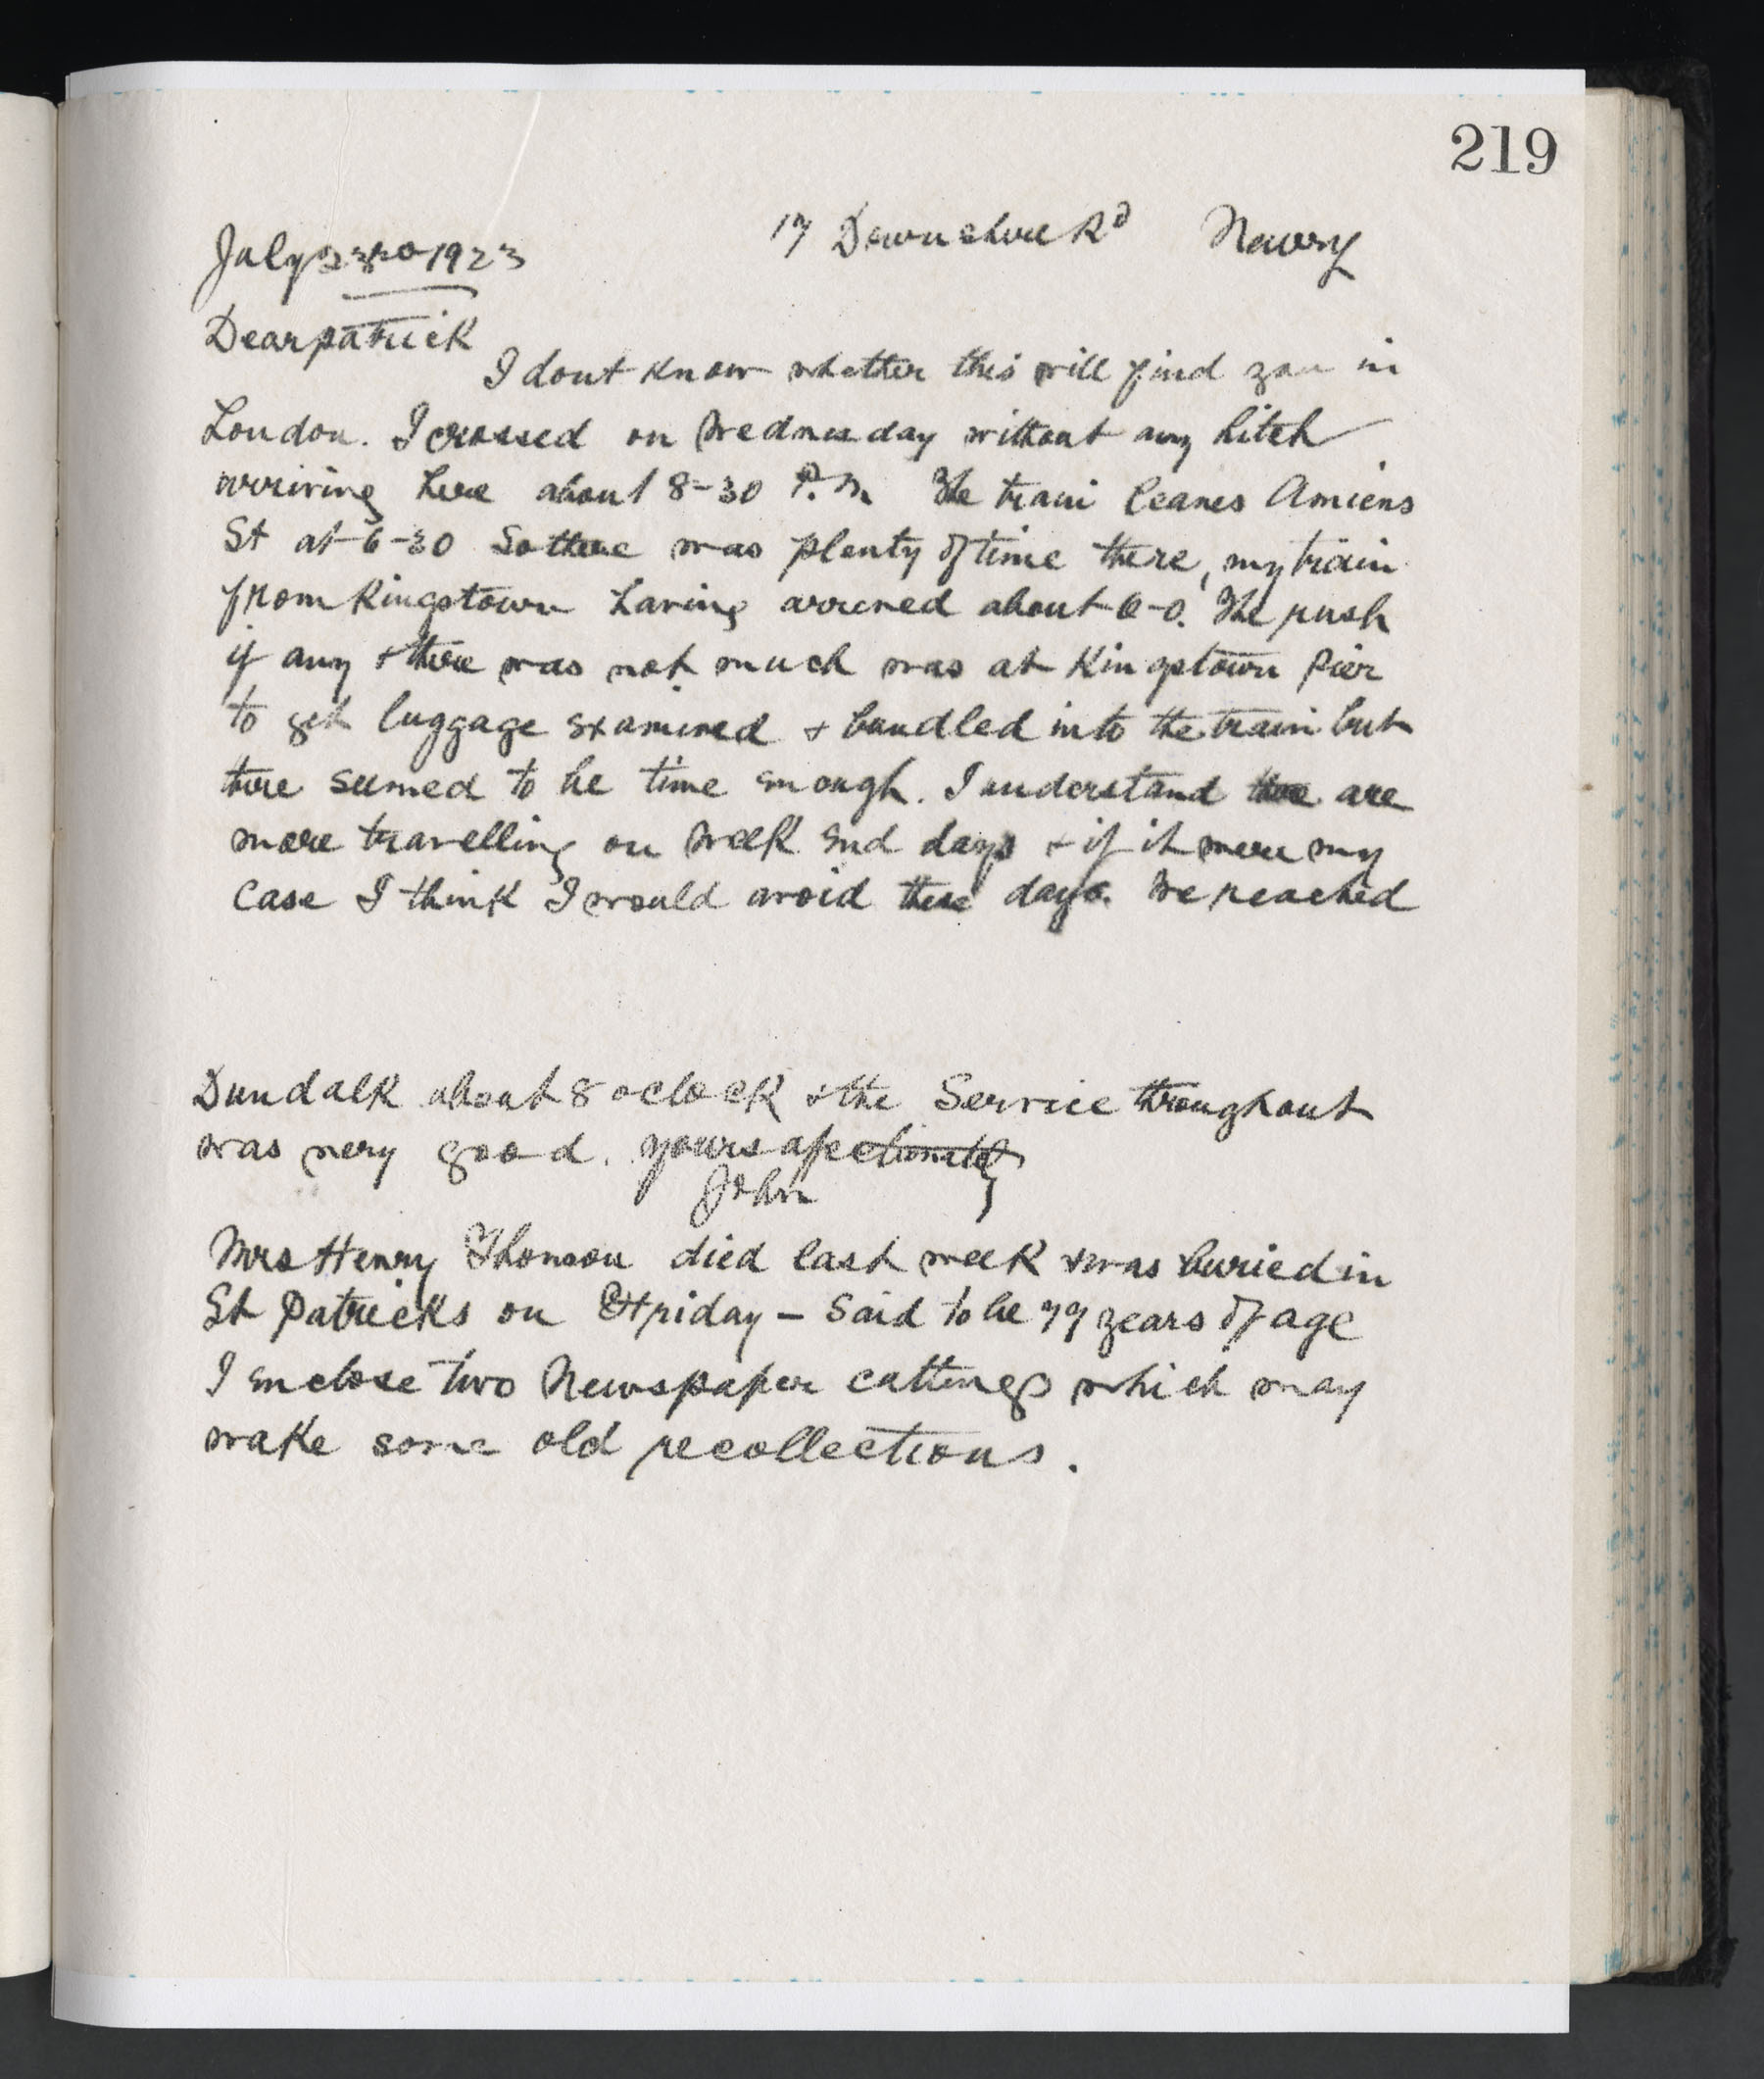 219
17 Downshire Rd Newry
July 23rd 1923
Dear patrick
I dont know whether this will find you in
London. I crossed on Wednesday without any hitch
arriving here about 8-30 P.M. The train leaves Amiens
St at 6-30 So there was plenty of time there, my train
from Kingstown having arrived about 6-0. The rush
if any & there was not much was at Kingstown Pier
to get luggage examined & bundled into the train but
there seemed to be time enough. I understand there are
more travelling on Week End days & if it were my
Case I think I would avoid these days. We reached
Dundalk about 8 oclock & the Service throughout
was very good. yours afectionately
John
Mrs Henry Thomson died last week & was buried in
St Patricks on Friday – Said to be 79 years of age
I Enclose two Newspaper cuttings which may
wake some old recollections.